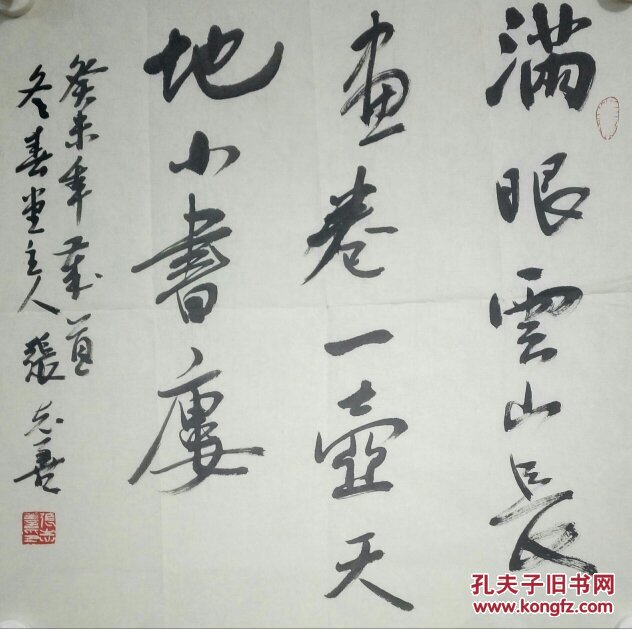 满眼雲山長
画卷一壺天
地小書廔
癸未年歲首
冬春堂主人 張志善
孔夫子旧书网
www.kongfz.com